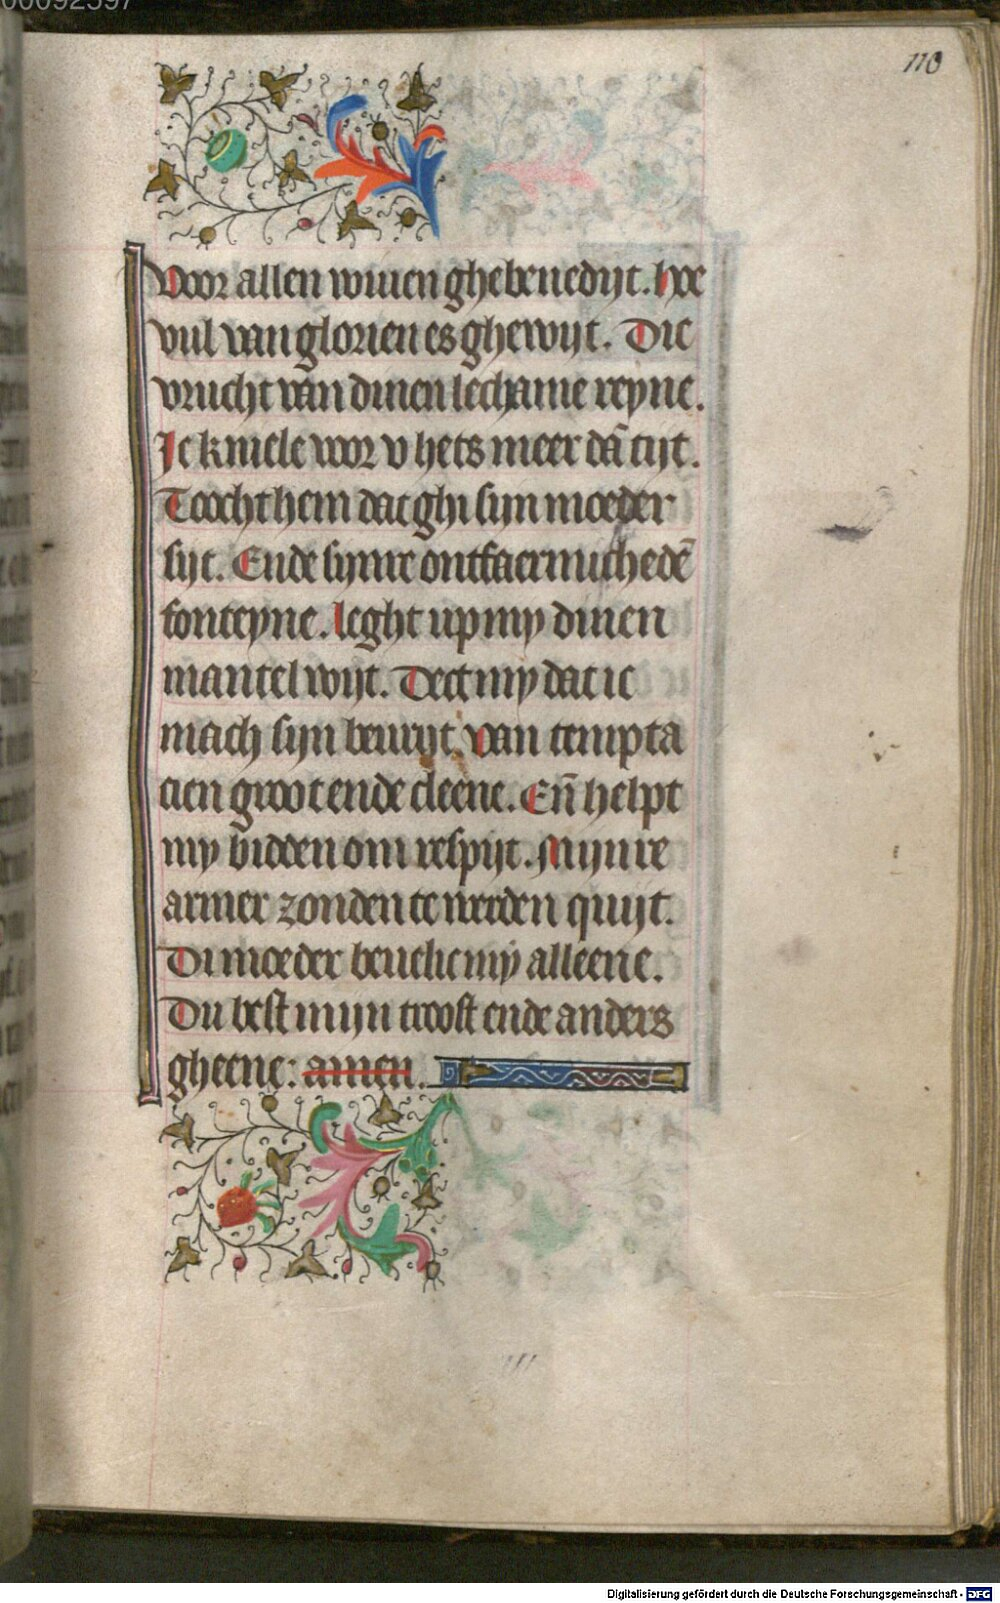 110
Voor allen wiuen ghebenedijt. hoe
vul van glorien es ghewijt. Die
vrucht van dinen lechame reyne.
Ic kniele voor v hets meer dā tijt.
Toocht hem dat ghi sijn moeder
sijt. Ende sijnre ontfaermichedē
fonteyne. leght up my dinen
mantel wijt. Dect my dat ic
mach sijn bevrijt. van tempta
cien groot ende cleene. En̄ helpt
my bidden om respijt. Mijnre
armer zonden te werden quijt.
Di moeder beuelic my alleene.
Du best mijn troost ende anders
gheene: amen.
Digitalisierung gefördert durch die Deutsche Forschungsgemeinschaft - DFG